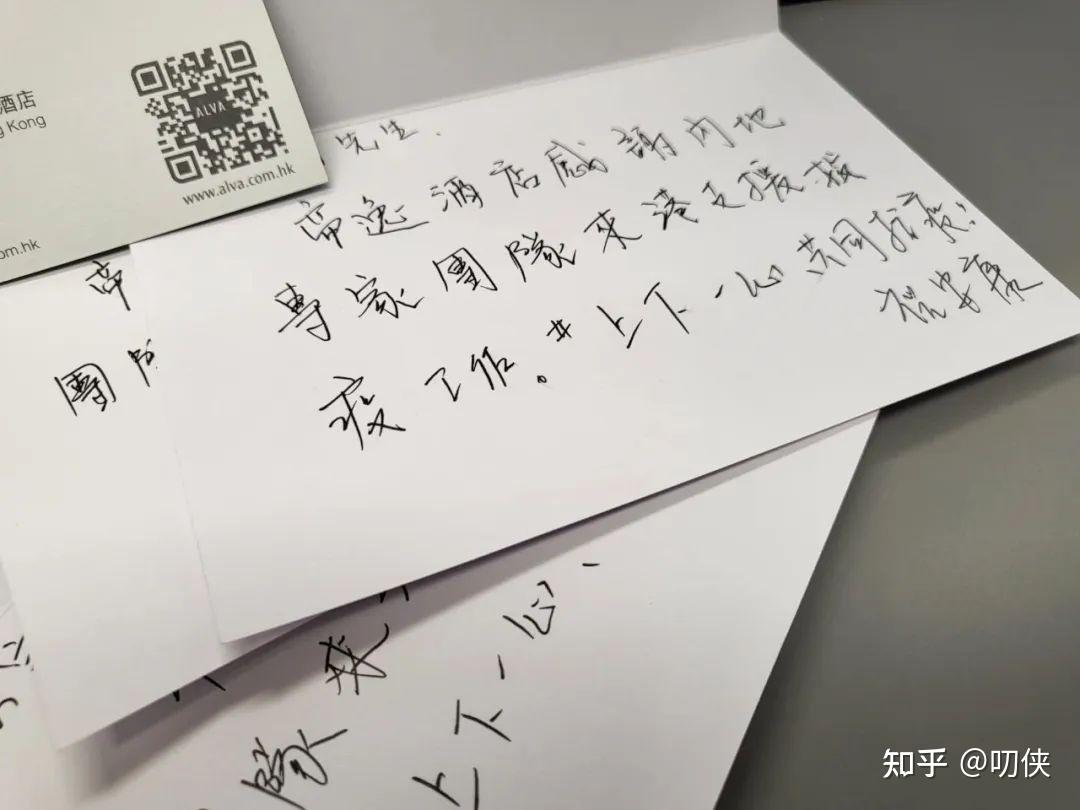 酒店
g Kong
ALVA
www.alva.com.hk
om.hk
先生.
帝逸酒店感謝內地
專家團隊來港支援援
疫工作。# 上下一心 共同抗疫!
祝安康
帝
團隊
隊來
上下一心、
知乎 @叨侠